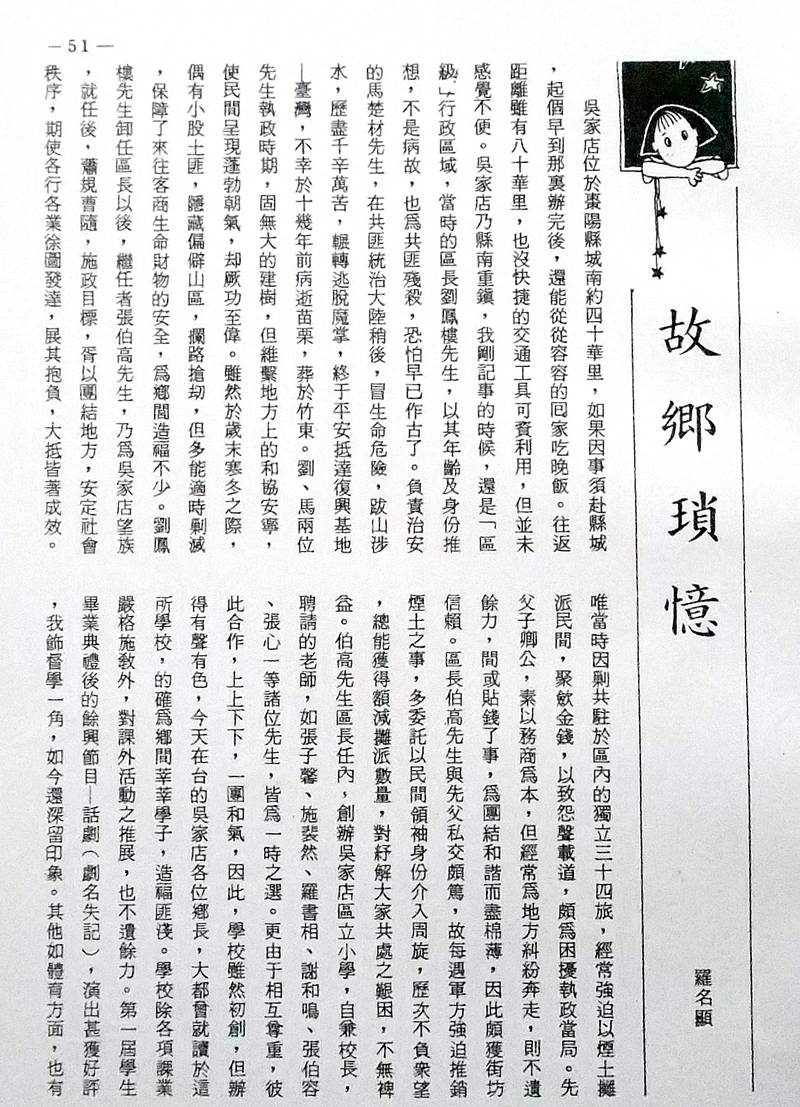 —51—
故鄉瑣憶
羅名顯
吳家店位於棗陽縣城南約四十華里，如果因事須赴縣城
，起個早到那裏辦完後，還能從從容容的回家吃晚飯。往返
距離雖有八十華里，也沒快捷的交通工具可資利用，但並未
感覺不便。吳家店乃縣南重鎮，我剛記事的時候，還是「區
級」行政區域，當時的區長劉鳳樓先生，以其年齡及身份推
想，不是病故，也爲共匪殘殺，恐怕早已作古了。負責治安
的馬楚材先生，在共匪統治大陸稍後，冒生命危險，跋山涉
水，歷盡千辛萬苦，輾轉逃脫魔掌，終于平安抵達復興基地
—臺灣，不幸於十幾年前病逝苗栗，葬於竹東。劉、馬兩位
先生執政時期，固無大的建樹，但維繫地方上的和協安寧，
使民間呈現蓬勃朝氣，却厥功至偉。雖然於歲末寒冬之際，
偶有小股土匪，隱藏偏僻山區，攔路搶刧，但多能適時剿滅
，保障了來往客商生命財物的安全，爲鄉閭造福不少。劉鳳
樓先生卸任區長以後，繼任者張伯高先生，乃爲吳家店望族
，就任後，蕭規曹隨，施政目標，胥以團結地方，安定社會
秩序，期使各行各業徐圖發達，展其抱負，大抵皆著成效。
唯當時因剿共駐於區內的獨立三十四旅，經常強迫以煙土攤
派民間，聚歛金錢，以致怨聲載道，頗爲困擾執政當局。先
父子卿公，素以務商爲本，但經常爲地方糾紛奔走，則不遺
餘力，間或貼錢了事，爲團結和諧而盡棉薄，因此頗獲街坊
信賴。區長伯高先生與先父私交頗篤，故每遇軍方強迫推銷
煙土之事，多委託以民間領袖身份介入周旋，歷次不負衆望
，總能獲得額減攤派數量，對紓解大家共處之艱困，不無裨
益。伯高先生區長任內，創辦吳家店區立小學，自兼校長，
聘請的老師，如張子馨、施裴然、羅書相、謝和鳴、張伯容
、張心一等諸位先生，皆爲一時之選。更由于相互尊重，彼
此合作，上上下下，一團和氣，因此，學校雖然初創，但辦
得有聲有色，今天在台的吳家店各位鄉長，大都曾就讀於這
所學校，的確爲鄉間莘莘學子，造福匪淺。學校除各項課業
嚴格施教外，對課外活動之推展，也不遺餘力。第一屆學生
畢業典禮後的餘興節目—話劇（劇名失記），演出甚獲好評
，我飾督學一角，如今還深留印象。其他如體育方面，也有